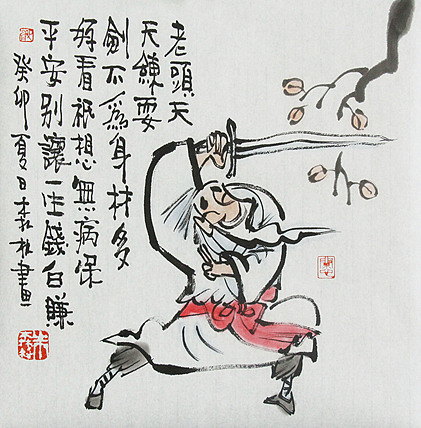 老頭天
天練耍
劍不爲身材多
好看祇想無病保
平安别讓一生錢白賺
癸卯夏日畫